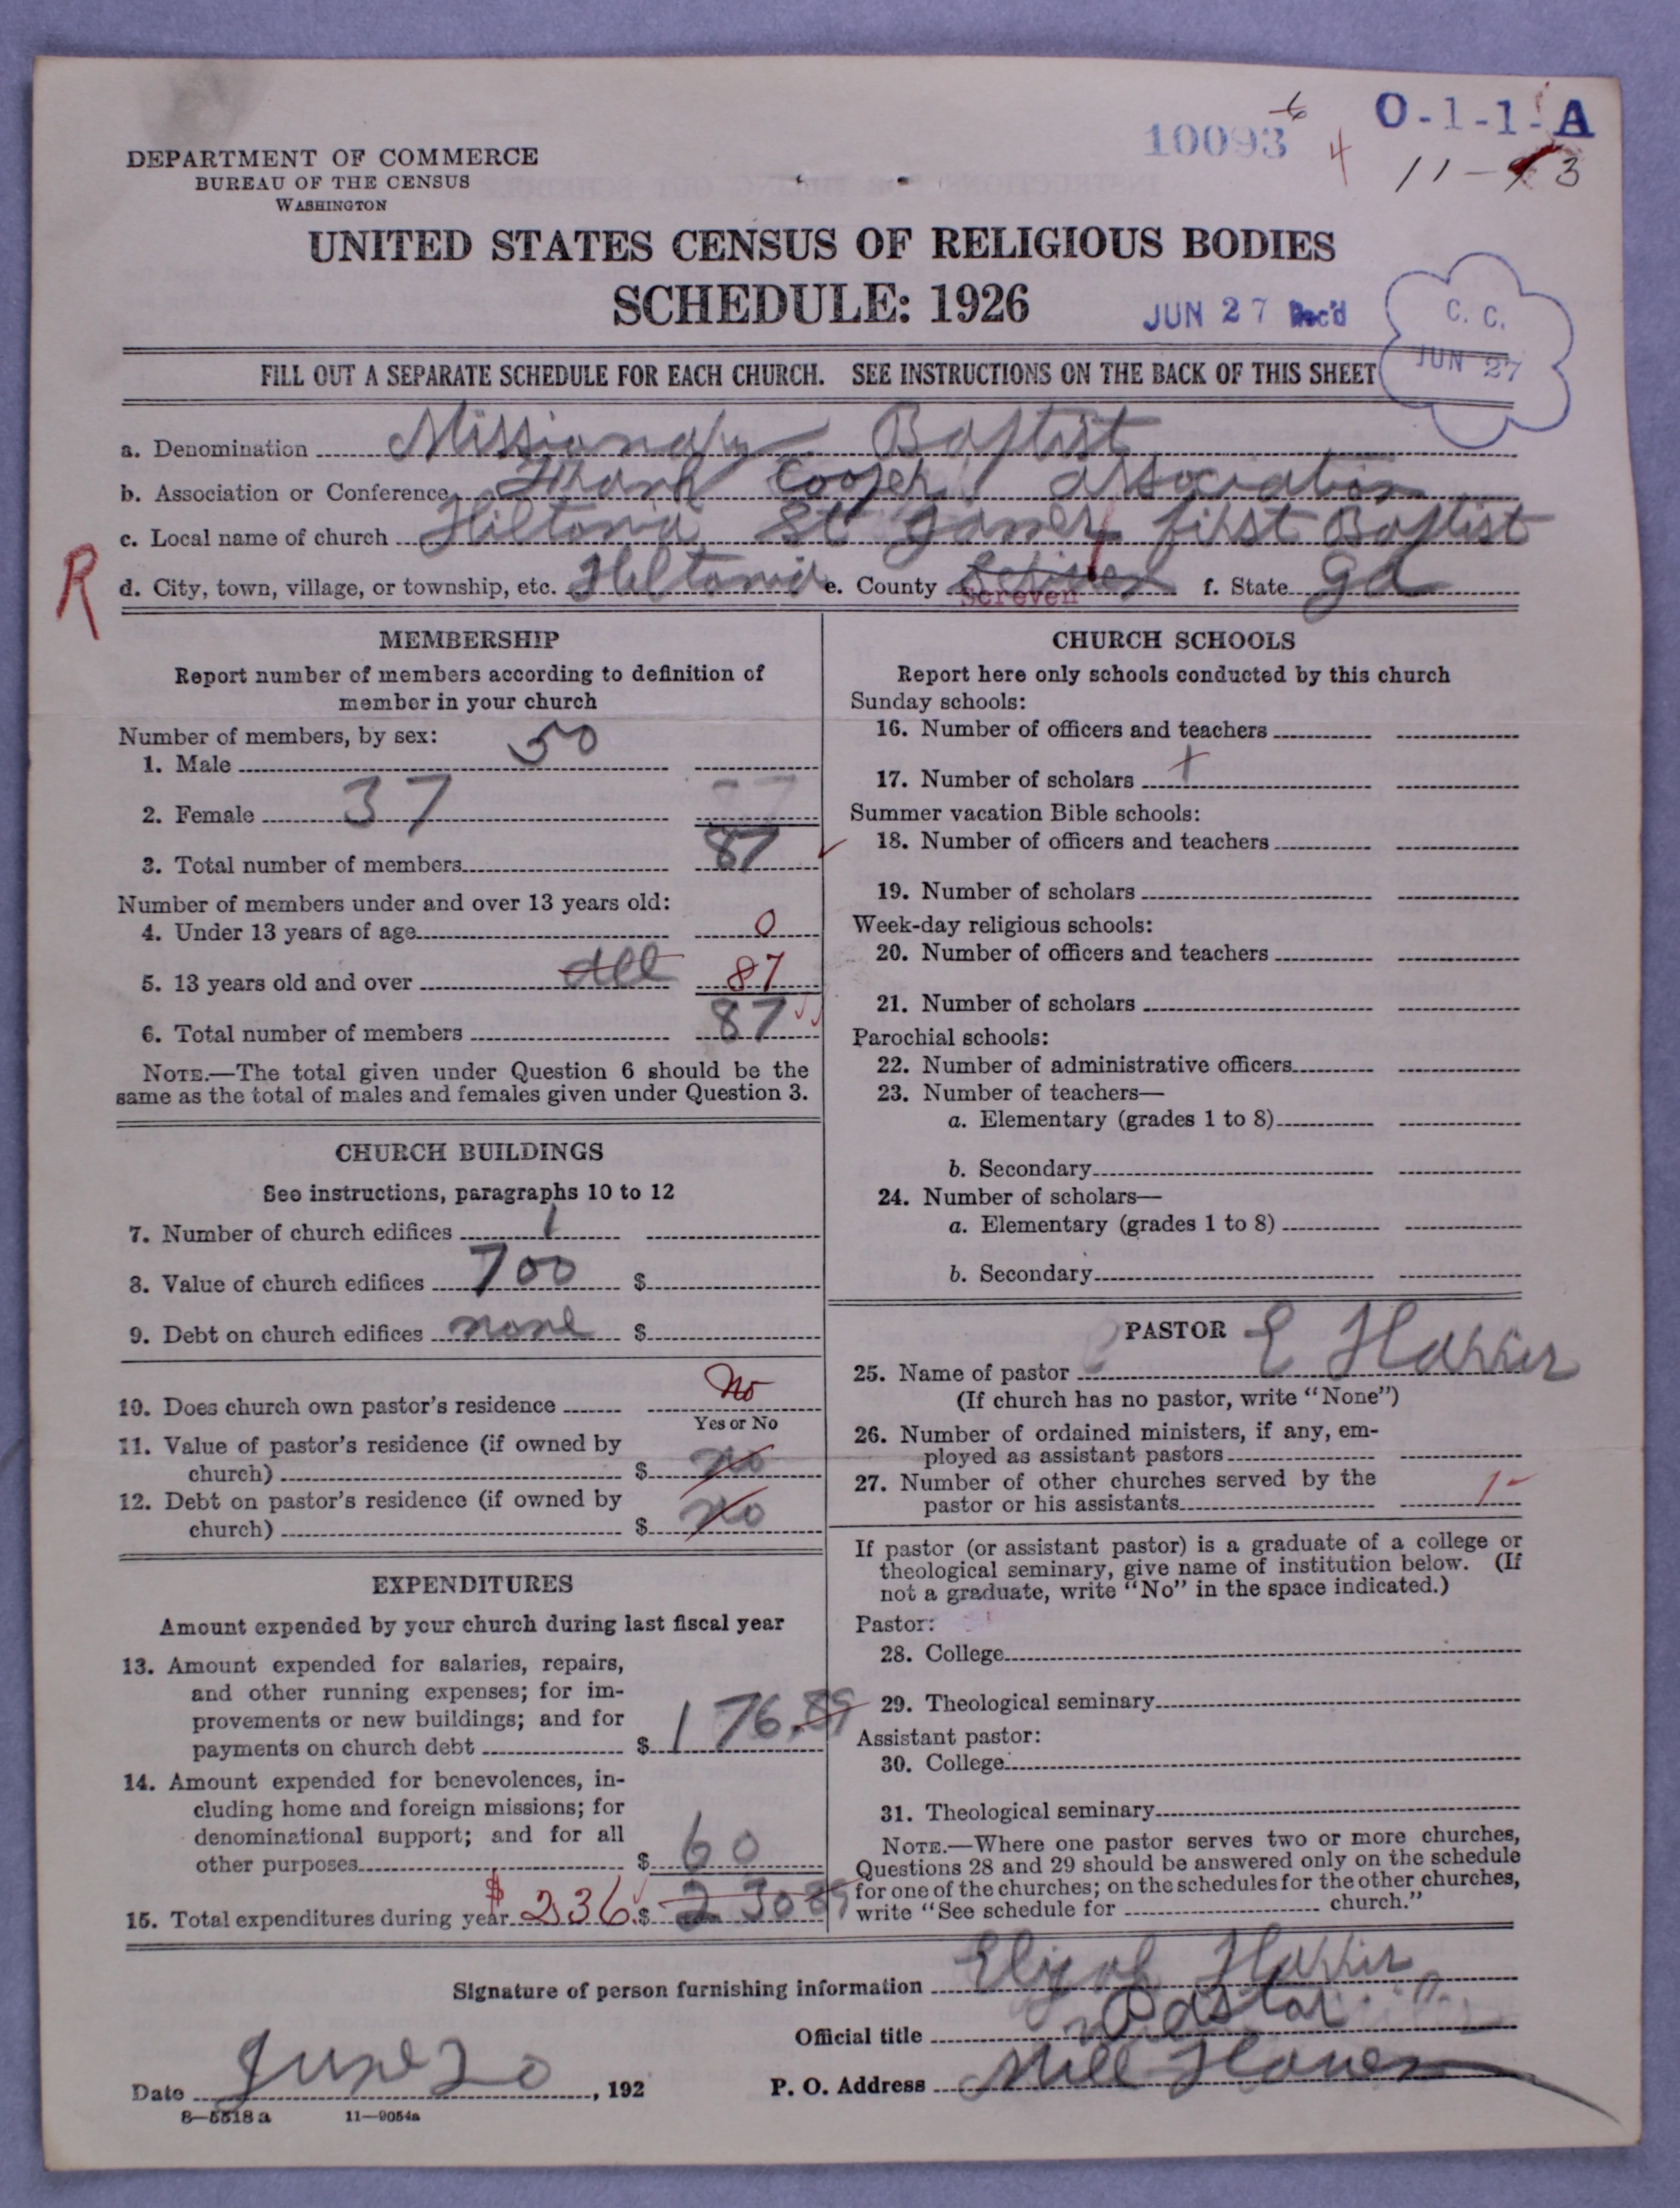 10093
6
4
O-1-1-A
11-13
DEPARTMENT OF COMMERCE
BUREAU OF THE CENSUS
WASHINGTON
UNITED STATES CENSUS OF RELIGIOUS BODIES
SCHEDULE: 1926
JUN 27 Rec'd
C. C.
JUN 27
FILL OUT A SEPARATE SCHEDULE FOR EACH CHURCH. SEE INSTRUCTIONS ON THE BACK OF THIS SHEET
a. Denomination Missionary Baptist
b. Association or Conference Frank Cooper association
c. Local name of church Hiltonia St James first Baptist
R
d. City, town, village, or township, etc. Hiltonia e. County Screven f. State Ga
MEMBERSHIP
Report number of members according to definition of
member in your church
Number of members, by sex:
1. Male 50
2. Female 37
3. Total number of members 87
Number of members under and over 13 years old:
4. Under 13 years of age 0
5. 13 years old and over all 87
6. Total number of members 87
NOTE.—The total given under Question 6 should be the
same as the total of males and females given under Question 3.
CHURCH BUILDINGS
See instructions, paragraphs 10 to 12
7. Number of church edifices 1
8. Value of church edifices 700 $
9. Debt on church edifices none $
10. Does church own pastor's residence No
Yes or No
11. Value of pastor's residence (if owned by
church) $ no
12. Debt on pastor's residence (if owned by
church) $ no
EXPENDITURES
Amount expended by your church during last fiscal year
13. Amount expended for salaries, repairs,
and other running expenses; for im-
provements or new buildings; and for
payments on church debt $ 176.89
14. Amount expended for benevolences, in-
cluding home and foreign missions; for
denominational support; and for all
other purposes $ 60
15. Total expenditures during year $236. $ 230 89
CHURCH SCHOOLS
Report here only schools conducted by this church
Sunday schools:
16. Number of officers and teachers
17. Number of scholars
Summer vacation Bible schools:
18. Number of officers and teachers
19. Number of scholars
Week-day religious schools:
20. Number of officers and teachers
21. Number of scholars
Parochial schools:
22. Number of administrative officers
23. Number of teachers—
a. Elementary (grades 1 to 8)
b. Secondary
24. Number of scholars—
a. Elementary (grades 1 to 8)
b. Secondary
PASTOR
25. Name of pastor E Harrier
(If church has no pastor, write "None")
26. Number of ordained ministers, if any, em-
ployed as assistant pastors
27. Number of other churches served by the
pastor or his assistants 1-
If pastor (or assistant pastor) is a graduate of a college or
theological seminary, give name of institution below. (If
not a graduate, write "No" in the space indicated.)
Pastor:
28. College
29. Theological seminary
Assistant pastor:
30. College
31. Theological seminary
NOTE.—Where one pastor serves two or more churches,
Questions 28 and 29 should be answered only on the schedule
for one of the churches; on the schedules for the other churches,
write "See schedule for church."
Signature of person furnishing information Elijah
Official title Pastor
Date June 20, 192
P. O. Address Mill Haven
8—5518 a 11—9054a